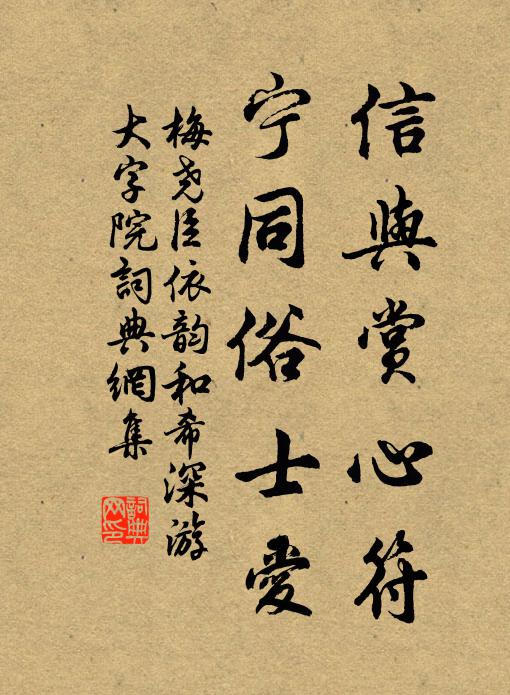 信與赏心符
宁同俗士愛
梅尧臣依韵和希深游
大字院詞典網集
詞典网印